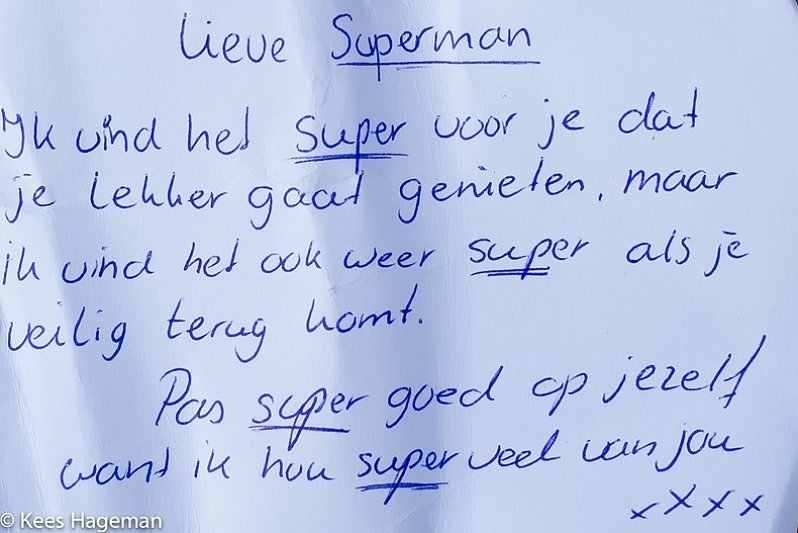 Lieve Superman
Ik vind het super voor je dat
je lekker gaat genieten, maar
ik vind het ook weer super als je
veilig terug komt.
Pas super goed op jezelf
want ik hou super veel van jou
x x x x
© Kees Hageman